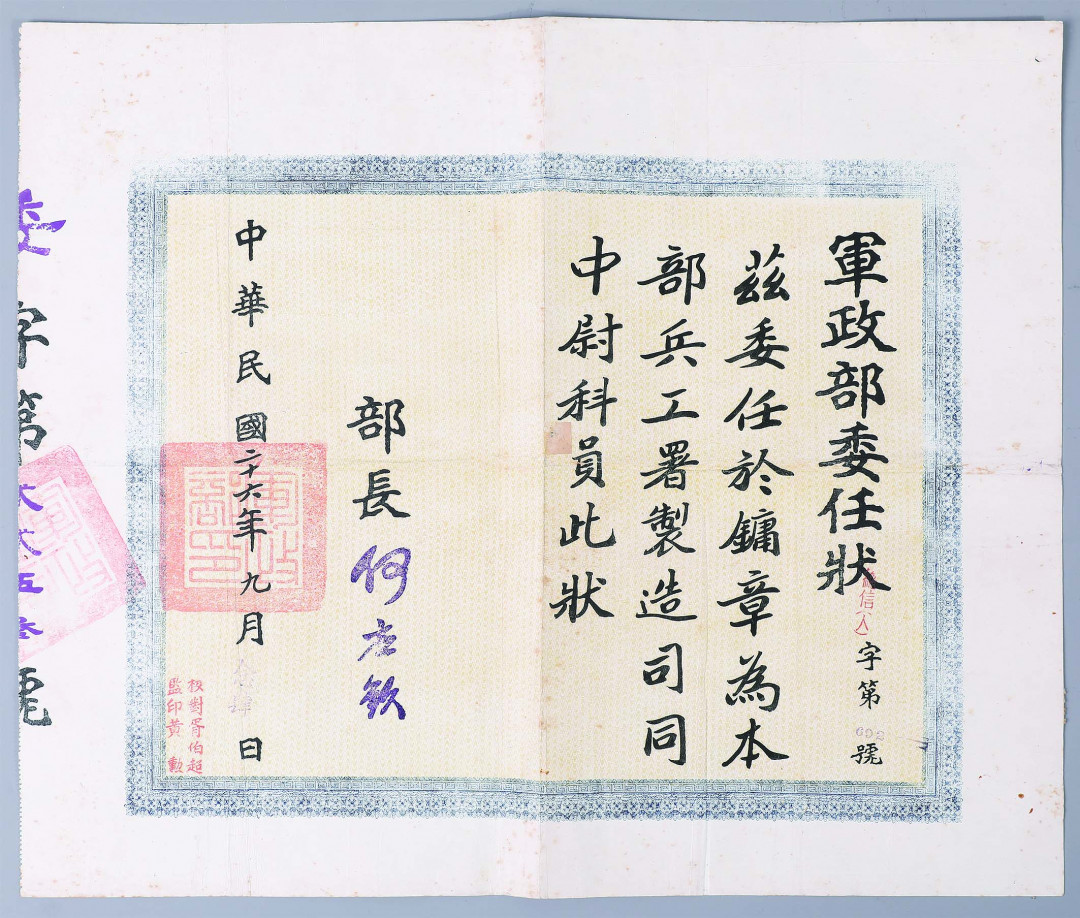 軍政部委任狀
信(人)字第692號
茲委任於鏞章為本
部兵工署製造司同
中尉科員此狀
部長何应欽
中華民國二十六年九月 日
校對胥伯超
監印黃勳
委字第 弍五叁號